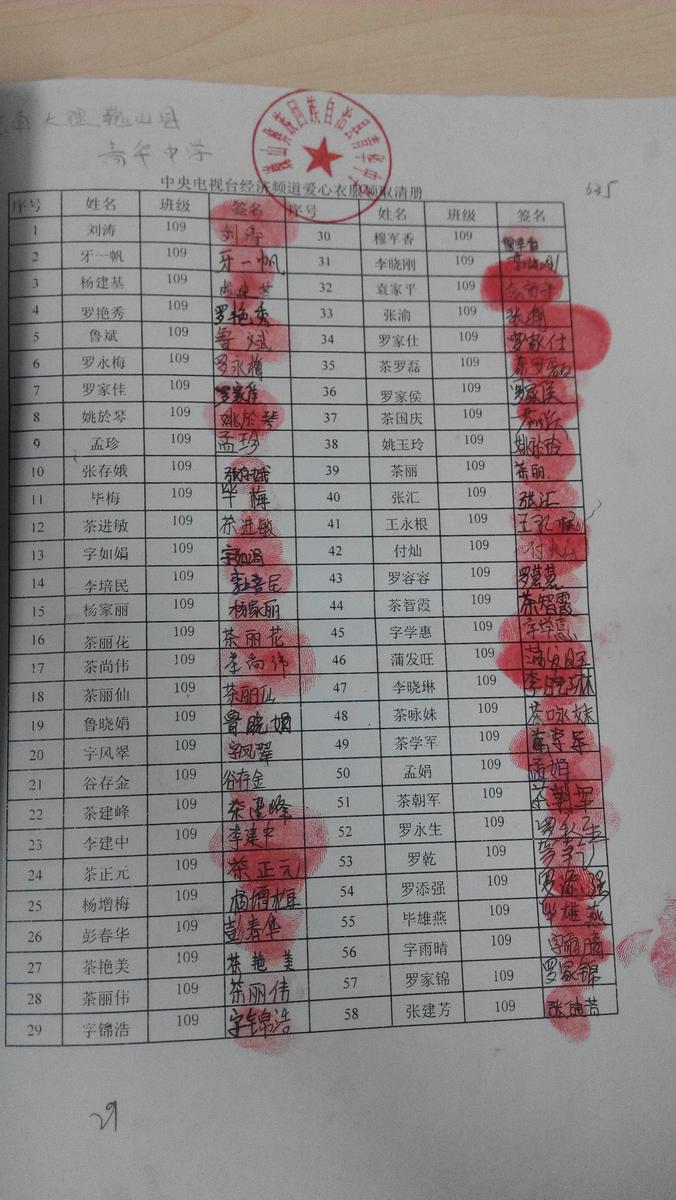 云南大理巍山县
青华中学
中央电视台经济频道爱心衣服领取清册
635
序号 姓名 班级 签名 序号 姓名 班级 签名
1 刘涛 109 刘涛 30 穆军香 109
2 牙一帆 109 牙一帆 31 李晓刚 109
3 杨建基 109 32 袁家平 109
4 罗艳秀 109 罗艳秀 33 张渝 109 张渝
5 鲁斌 109 鲁斌 34 罗家仕 109 罗家仕
6 罗永梅 109 罗永梅 35 茶罗磊 109 茶罗磊
7 罗家佳 109 罗家佳 36 罗家侯 109 罗家侯
8 姚於琴 109 姚於琴 37 茶国庆 109
9 孟珍 109 孟珍 38 姚玉玲 109
10 张存娥 109 张存娥 39 茶丽 109 茶丽
11 毕梅 109 毕梅 40 张汇 109 张汇
12 茶进敏 109 茶进敏 41 王永根 109 王永根
13 字如娟 109 字如娟 42 付灿 109 付灿
14 李培民 109 李培民 43 罗容容 109
15 杨家丽 109 杨家丽 44 茶智霞 109 茶智霞
16 茶丽花 109 茶丽花 45 字学惠 109 字学惠
17 茶尚伟 109 茶尚伟 46 蒲发旺 109 蒲发旺
18 茶丽仙 109 茶丽仙 47 李晓琳 109 李晓琳
19 鲁晓娟 109 鲁晓娟 48 茶咏妹 109 茶咏妹
20 字风翠 109 字风翠 49 茶学军 109 茶学军
21 谷存金 109 谷存金 50 孟娟 109 孟娟
22 茶建峰 109 茶建峰 51 茶朝军 109 茶朝军
23 李建中 109 李建中 52 罗永生 109 罗永生
24 茶正元 109 茶正元 53 罗乾 109
25 杨增梅 109 杨增梅 54 罗添强 109 罗添强
26 彭春华 109 彭春华 55 毕雄燕 109 毕雄燕
27 茶艳美 109 茶艳美 56 字雨晴 109 字雨晴
28 茶丽伟 109 茶丽伟 57 罗家锦 109 罗家锦
29 字锦浩 109 字锦浩 58 张建芳 109 张建芳
29